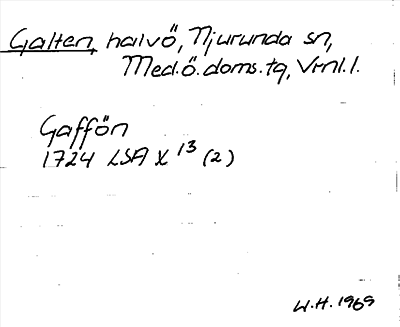 Galten, halvö, Njurunda sn,
Med.ö.doms.tg, Vrnl.l.
Gaffön
1724 LSA X 13 (2)
W.H. 1969